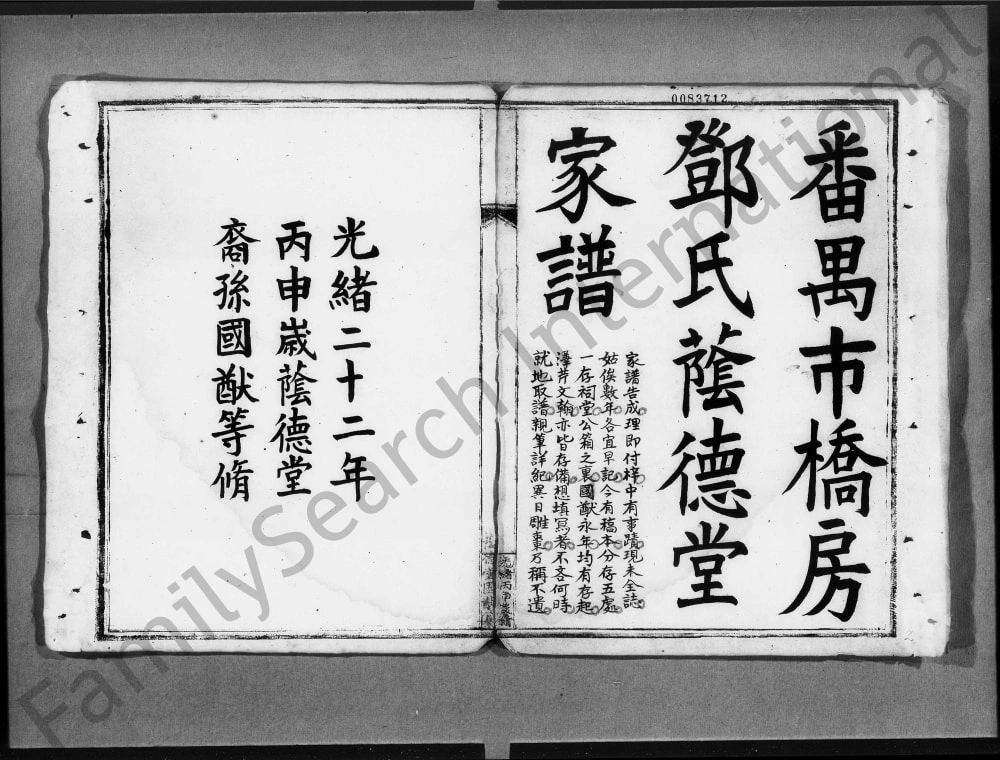 0083712
番禺市橋房
鄧氏蔭德堂
家譜
家譜告成理即付梓中有事蹟現未全誌
姑俟數年各宜早記今有稿本分存五處
一存祠堂公箱之裏國猷永年均有存起
澤芹文翰亦皆存備想填冩者不吝何時
就地取譜親筆詳紀異日雕棗乃稱不遺
光緒二十二年
丙申歲蔭德堂
裔孫國猷等脩
光緒丙申歲
FamilySearch International